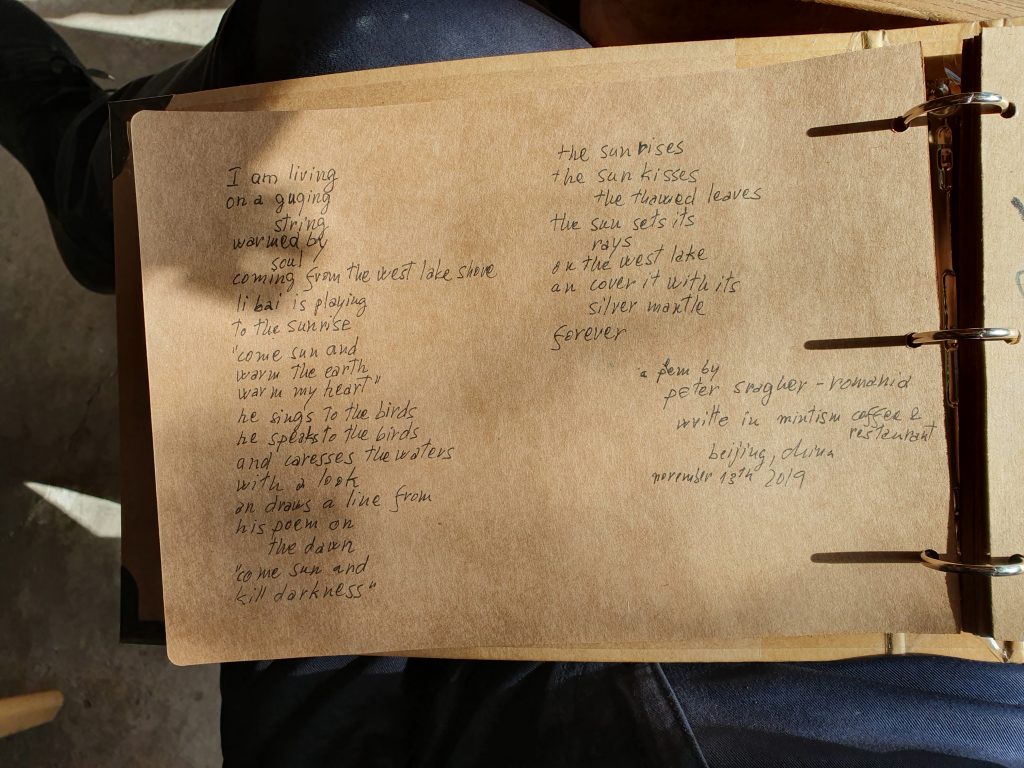 I am living
on a guqing
string
warmed by
soul
coming from the west lake shore
li bai is playing
to the sunrise
"come sun and
warm the earth
warm my heart"
he sings to the birds
he speaks to the birds
and caresses the waters
with a look
an draws a line from
his poem on
the dawn
"come sun and
kill darkness"
the sun rises
the sun kisses
the thawed leaves
the sun sets its
rays
on the west lake
an cover it with its
silver mantle
forever
a pem by
peter sragher - romania
writte in mintism coffee &
restaurant
beijing, china
november 13th 2019